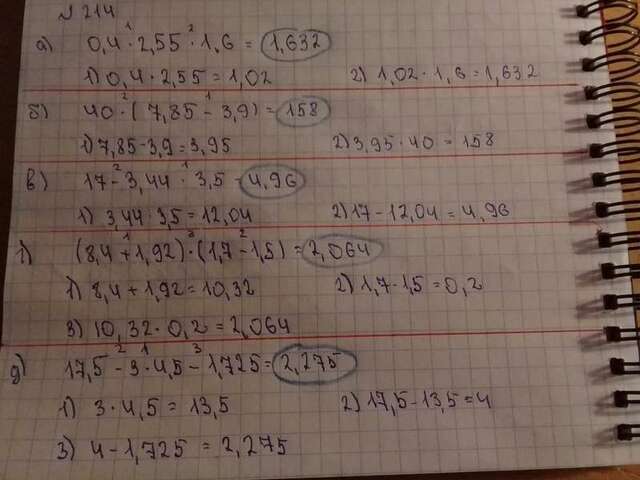 № 214
а) 0,4 · 2,55 · 1,6 = 1,632
1) 0,4 · 2,55 = 1,02 2) 1,02 · 1,6 = 1,632
б) 40 · (7,85 - 3,9) = 158
1) 7,85 - 3,9 = 3,95 2) 3,95 · 40 = 158
в) 17 - 3,44 · 3,5 = 4,96
1) 3,44 · 3,5 = 12,04 2) 17 - 12,04 = 4,96
г) (8,4 + 1,92) · (1,7 - 1,5) = 2,064
1) 8,4 + 1,92 = 10,32 2) 1,7 - 1,5 = 0,2
3) 10,32 · 0,2 = 2,064
д) 17,5 - 3 · 4,5 - 1,725 = 2,275
1) 3 · 4,5 = 13,5 2) 17,5 - 13,5 = 4
3) 4 - 1,725 = 2,275